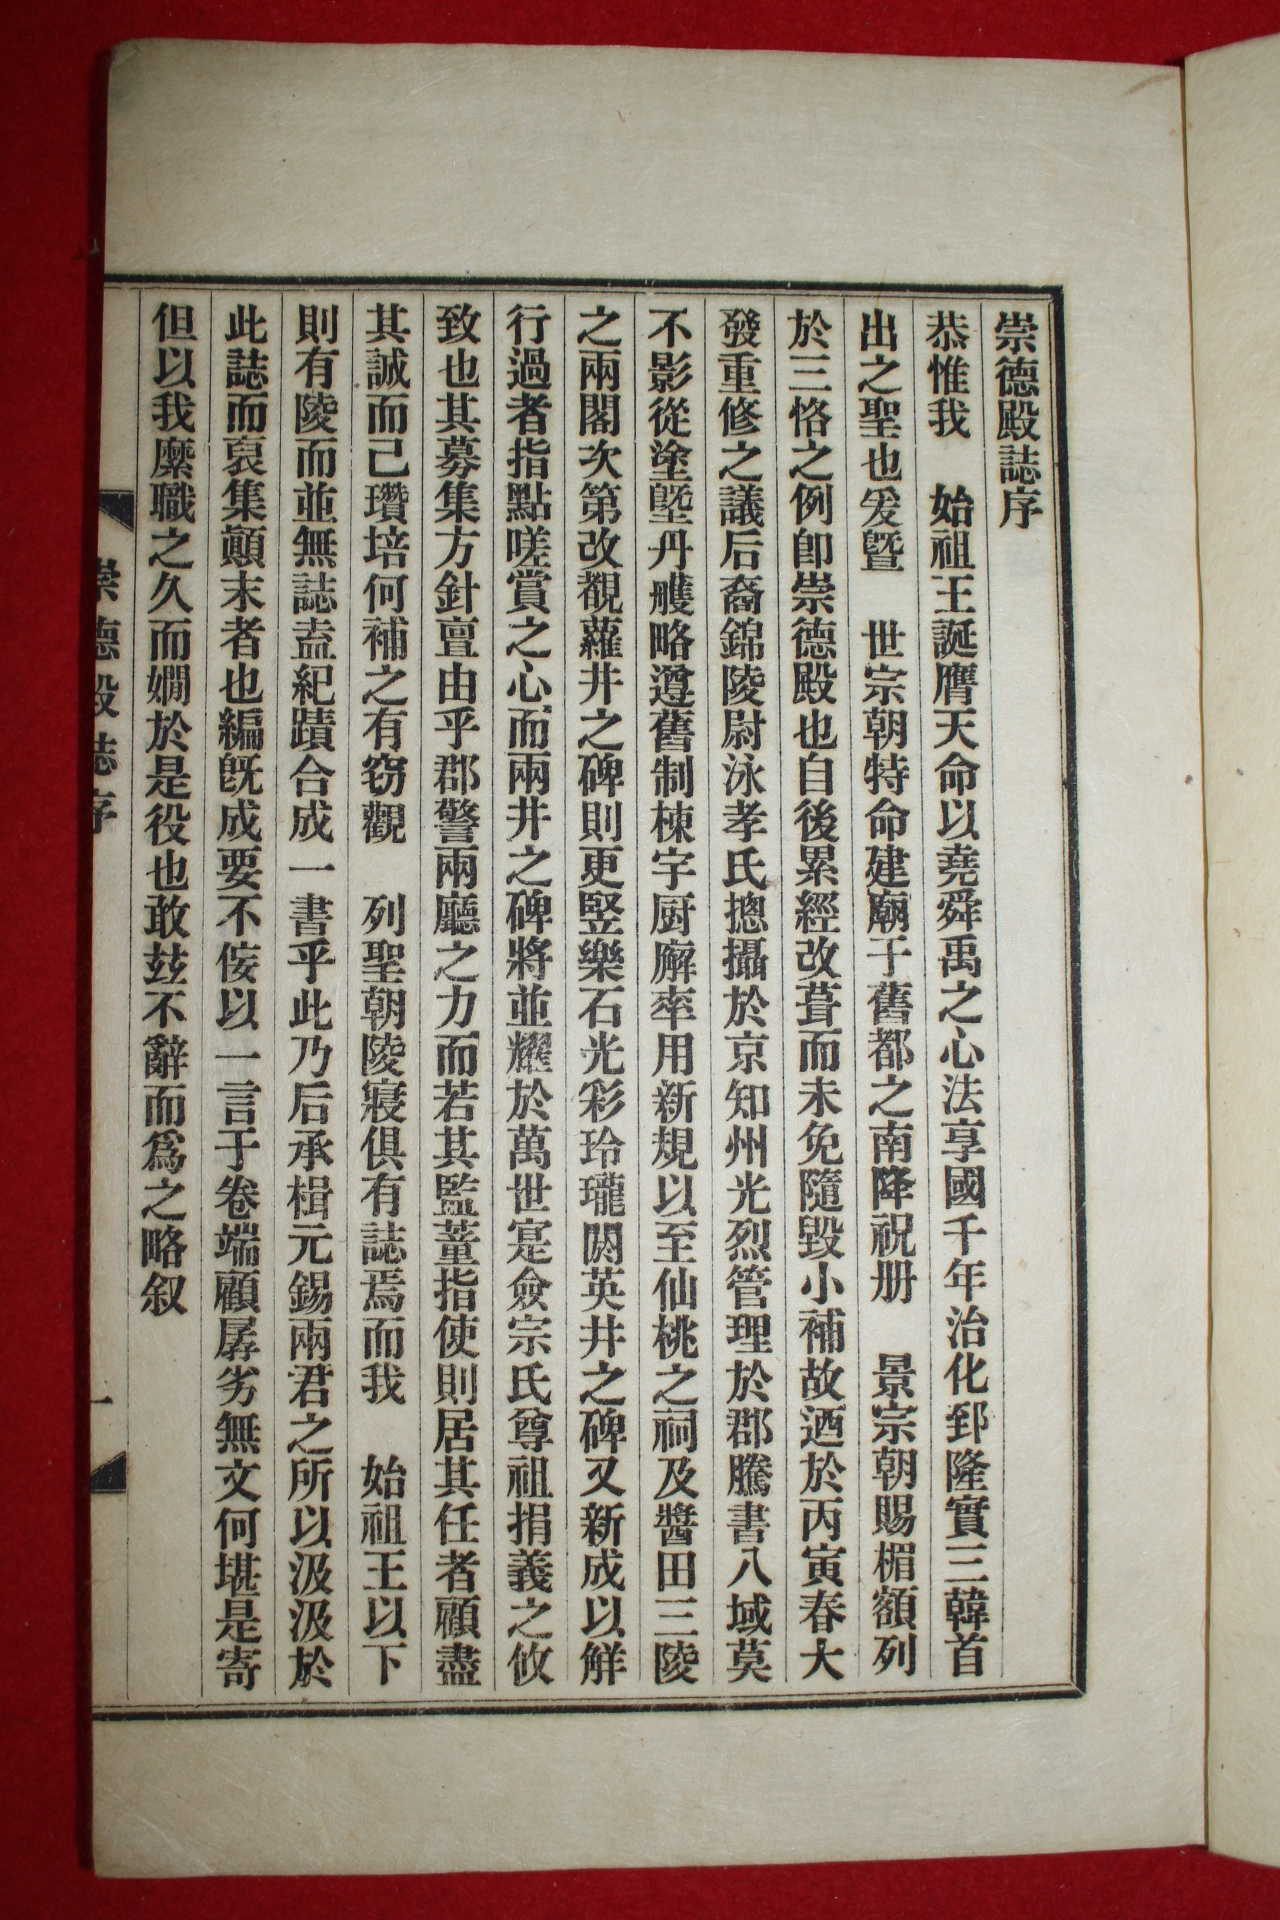 崇德殿誌序
恭惟我　始祖王誕膺天命以堯舜禹之心法享國千年治化郅隆實三韓首
出之聖也爰曁　世宗朝特命建廟于舊都之南降祝册　景宗朝賜楣額列
於三恪之例卽崇德殿也自後累經改葺而未免隨毀小補故迺於丙寅春大
發重修之議后裔錦陵尉泳孝氏摠攝於京知州光烈管理於郡騰書八域莫
不影從塗墍丹雘略遵舊制棟宇厨廨率用新規以至仙桃之祠及醬田三陵
之兩閣次第改觀蘿井之碑則更竪樂石光彩玲瓏閼英井之碑又新成以觧
行過者指點嗟賞之心而兩井之碑將並耀於萬世寔僉宗氏尊祖捐義之攸
致也其募集方針亶由乎郡警兩廳之力而若其監董指使則居其任者顧盡
其誠而己瓚培何補之有窃觀　列聖朝陵寢俱有誌焉而我　始祖王以下
則有陵而並無誌盍紀蹟合成一書乎此乃后承楫元錫兩君之所以汲汲於
此誌而裒集顚末者也編旣成要不侫以一言于卷端顧孱劣無文何堪是寄
但以我縻職之久而嫺於是役也敢玆不辭而爲之略叙
崇德殿誌序
一